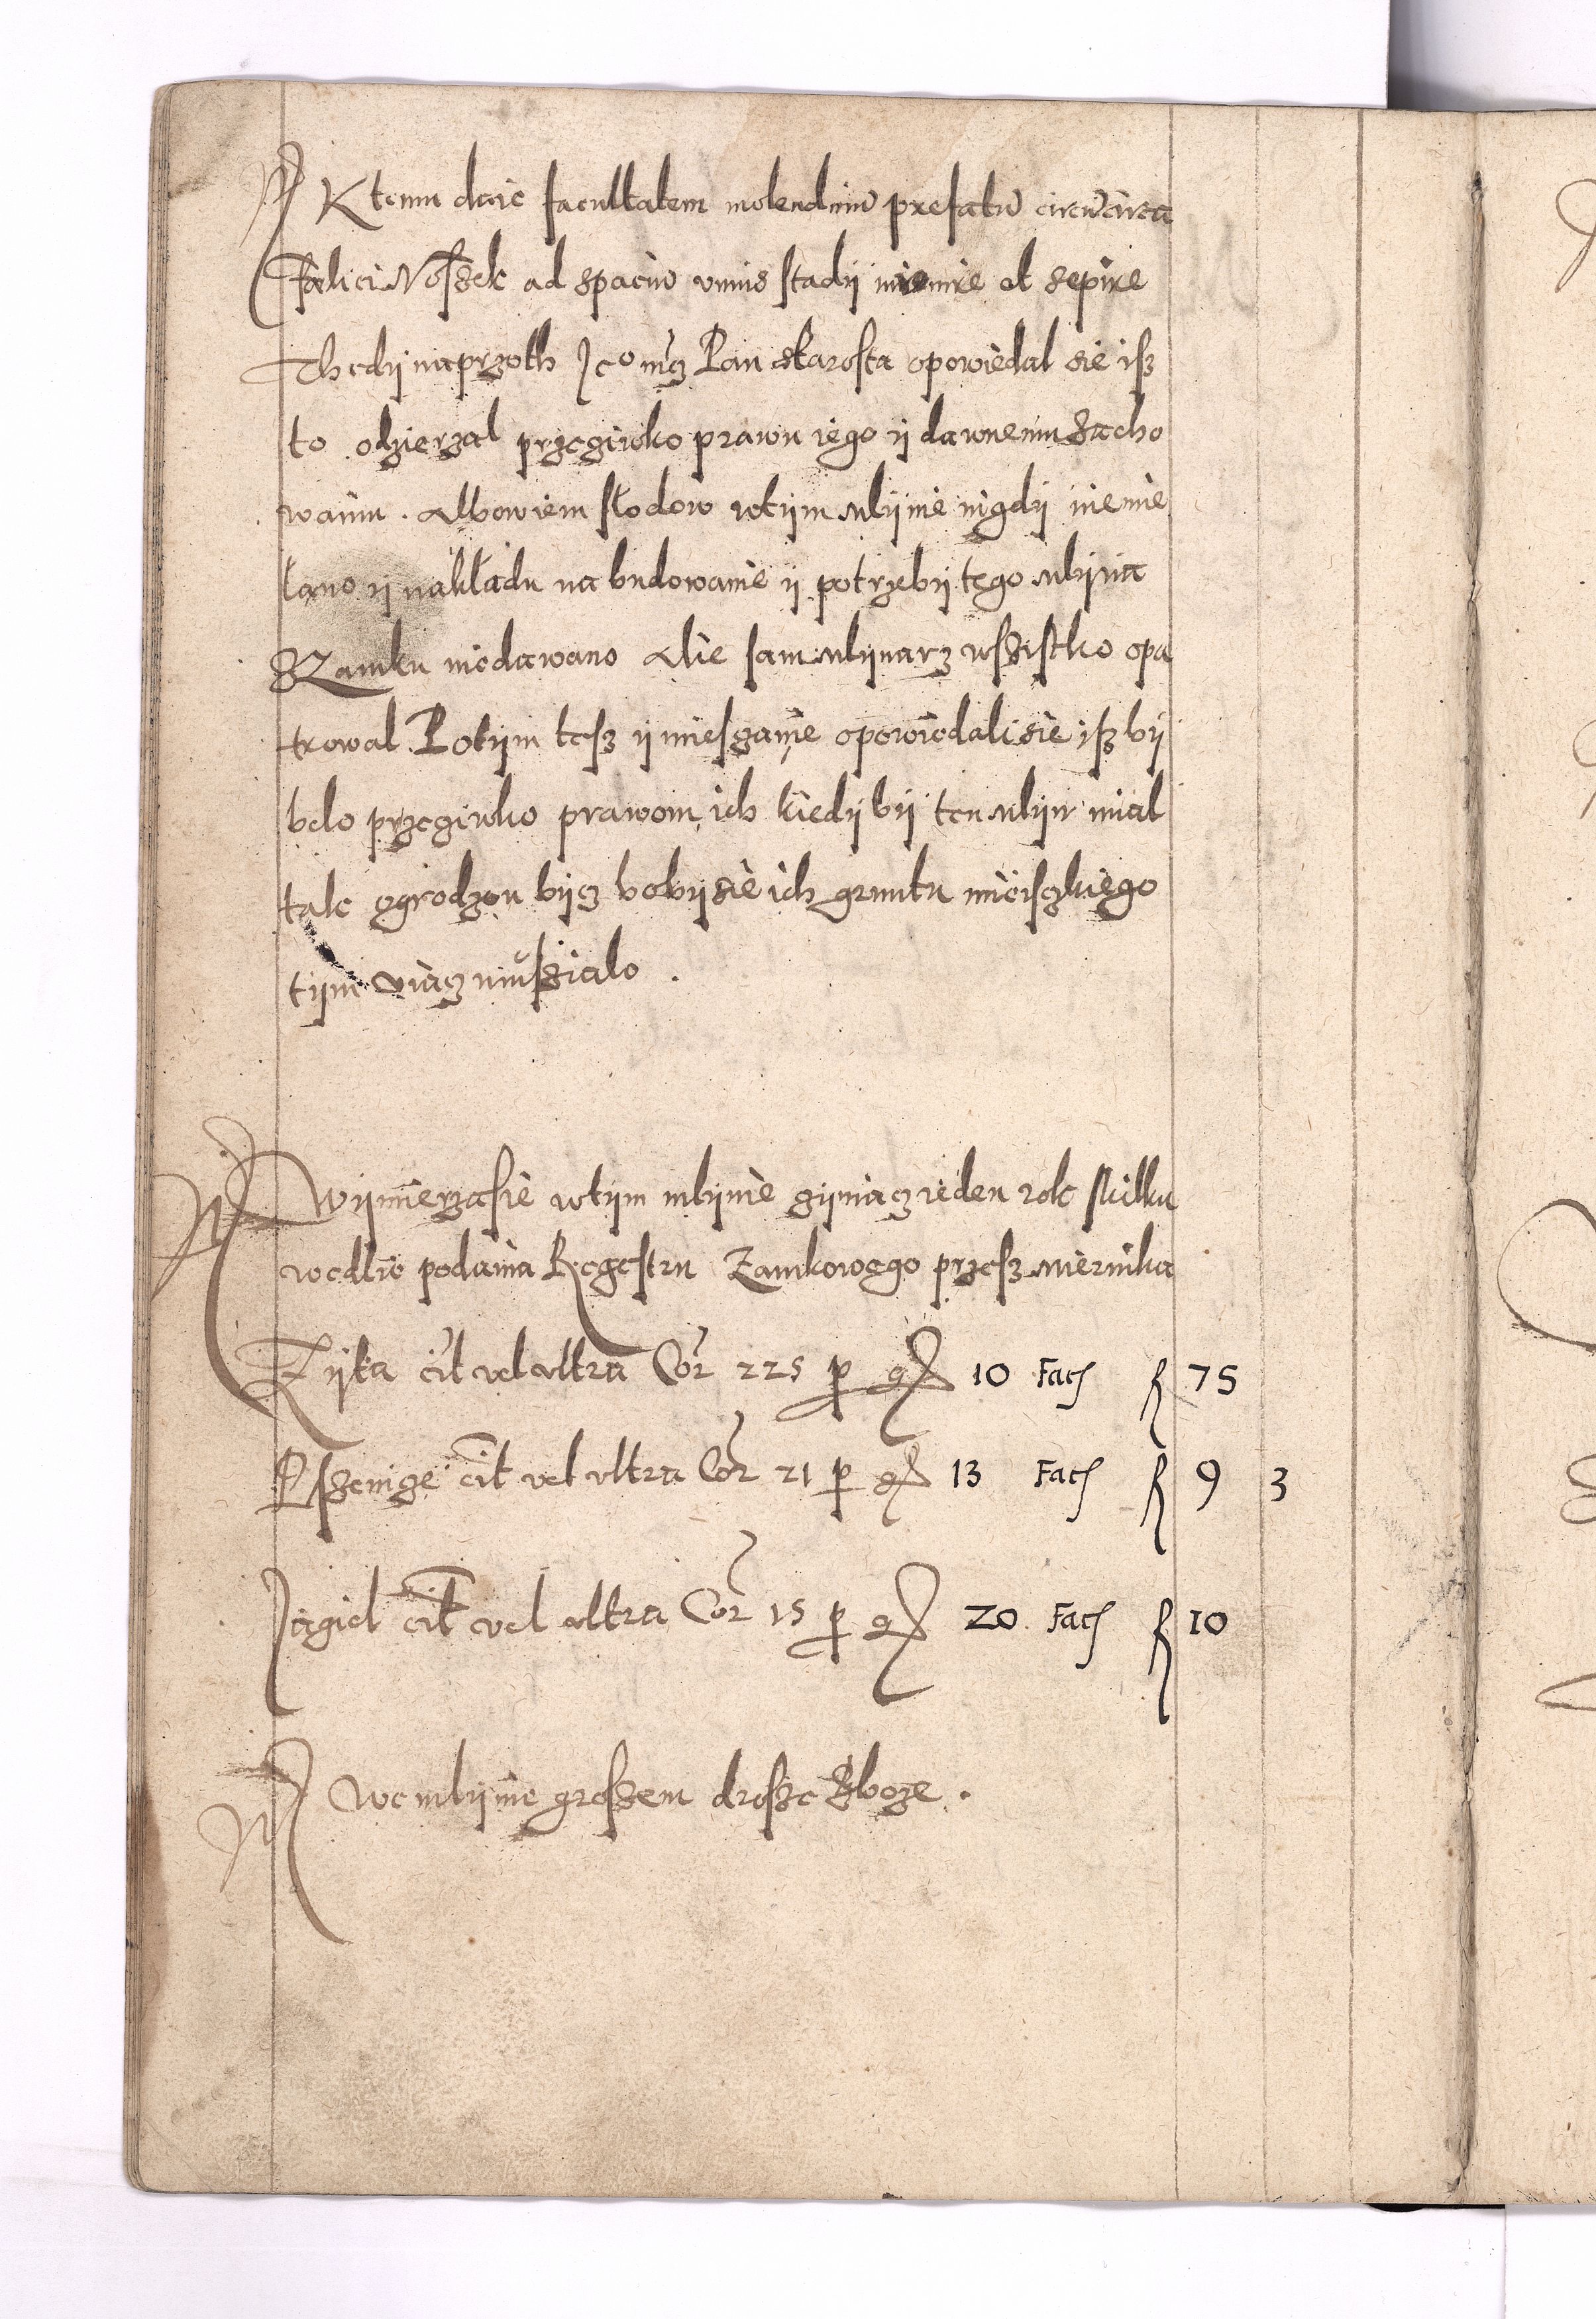 K temu daie facultatem molendinū prefatū circūcirca
Felici Nossek ad spaciū vnius stadij munire et sepire
Thedij naprzoth Jeo mcz Pan starosta opowiedal sie isz
to odzierzal przeciwko prawu iego ij dawnemu Zacho
waniu . Albowiem slodow wtijm mlijnie nigdij niemie
lano ij nakladu na budowanie ij potrzebij tego mlijna
Z Zamku niedawano Ale sam mlijnarz wszistko opa
trowal Potijm tesz ij miesczanie opowiedali sie isz bij
belo przeciwko prawom ich kiedij bij ten mlijn mial
tak ogrodzon bijcz bobij sie ich gruntu mieisczkiego
tijm viącz mussialo .
Wijmierza sie wtijm mlijnie czijniacz ieden rok s kilku
wedlie podania Regestru Zamkowego przesz miernika
Zijta cit vel vltra Cor 225 p gr 10 Fac fl 75
Pszenice cit vel vltra Cor 21 p gr 13 Fac fl 9 3
Jagiel cit vel vltra Cor 15 p gr 20 Fac fl 10
We mlijnie groszem drosze Zboze .